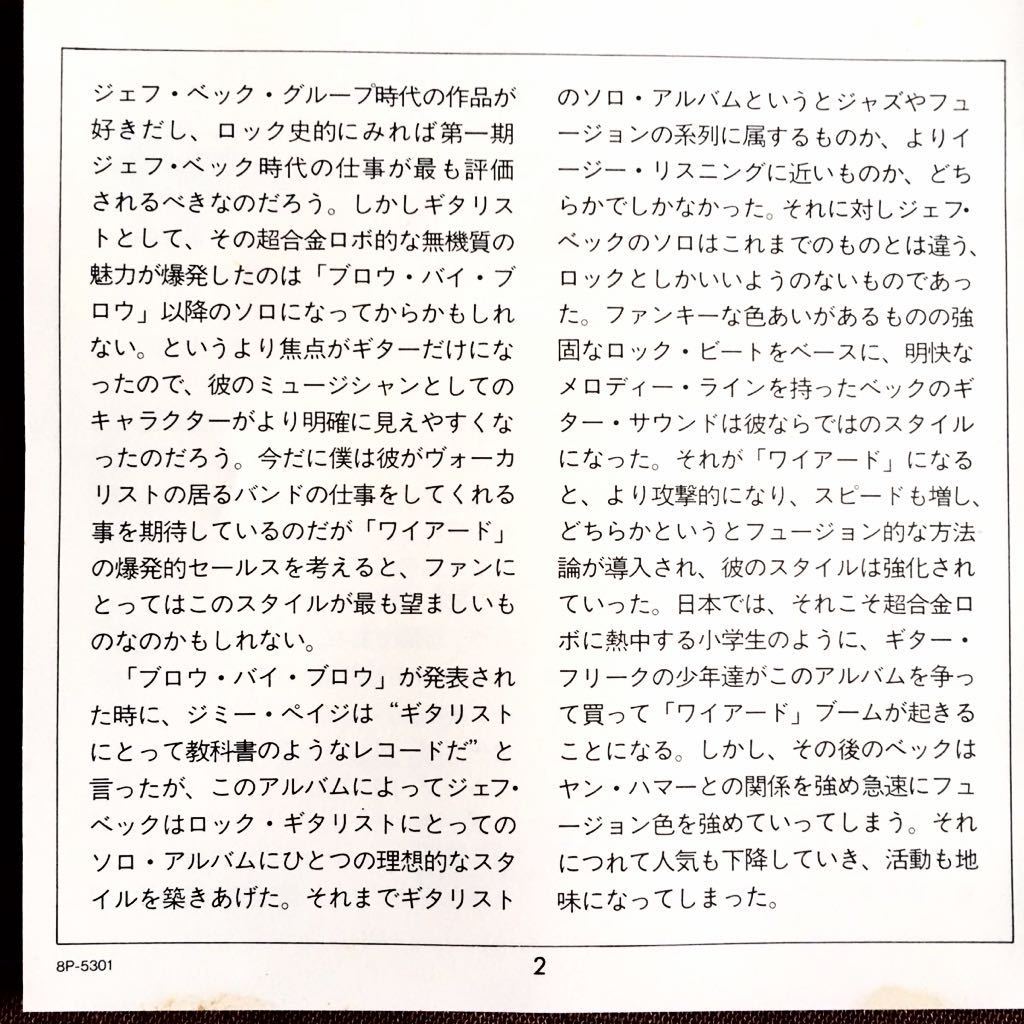 ジェフ・ベック・グループ時代の作品が
好きだし、ロック史的にみれば第一期
ジェフ・ベック時代の仕事が最も評価
されるべきなのだろう。しかしギタリス
トとして、その超合金ロボ的な無機質の
魅力が爆発したのは「ブロウ・バイ・ブ
ロウ」以降のソロになってからかもしれ
ない。というより焦点がギターだけにな
ったので、彼のミュージシャンとしての
キャラクターがより明確に見えやすくな
ったのだろう。今だに僕は彼がヴォーカ
リストの居るバンドの仕事をしてくれる
事を期待しているのだが「ワイアード」
の爆発的セールスを考えると、ファンに
とってはこのスタイルが最も望ましいも
のなのかもしれない。
「ブロウ・バイ・ブロウ」が発表され
た時に、ジミー・ペイジは“ギタリスト
にとって教科書のようなレコードだ”と
言ったが、このアルバムによってジェフ・
ベックはロック・ギタリストにとっての
ソロ・アルバムにひとつの理想的なスタ
イルを築きあげた。それまでギタリスト
のソロ・アルバムというとジャズやフュ
ージョンの系列に属するものか、よりイ
ージー・リスニングに近いものか、どち
らかでしかなかった。それに対しジェフ・
ベックのソロはこれまでのものとは違う、
ロックとしかいいようのないものであっ
た。ファンキーな色あいがあるものの強
固なロック・ビートをベースに、明快な
メロディー・ラインを持ったベックのギ
ター・サウンドは彼ならではのスタイル
になった。それが「ワイアード」になる
と、より攻撃的になり、スピードも増し、
どちらかというとフュージョン的な方法
論が導入され、彼のスタイルは強化され
ていった。日本では、それこそ超合金ロ
ボに熱中する小学生のように、ギター・
フリークの少年達がこのアルバムを争っ
て買って「ワイアード」ブームが起きる
ことになる。しかし、その後のベックは
ヤン・ハマーとの関係を強め急速にフュ
ージョン色を強めていってしまう。それ
につれて人気も下降していき、活動も地
味になってしまった。
8P-5301
2